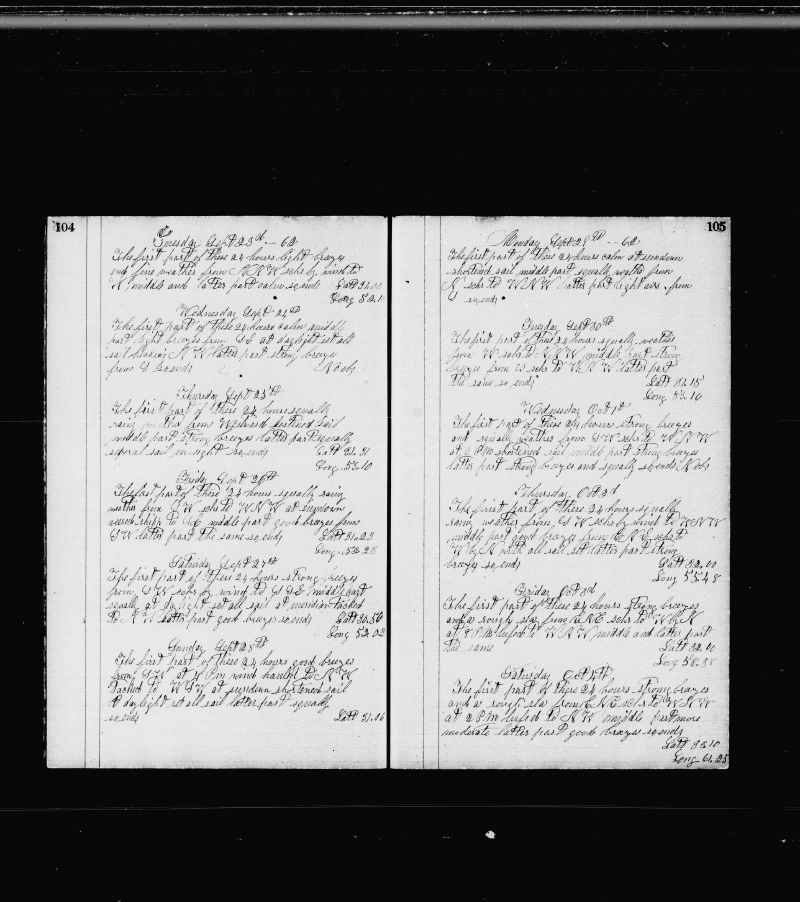 104
Tuesday Sept 23d -- 62
The first part of these 24 hours light breezes
and fine weather from NNW schr by wind to
N middle and latter part calm so ends Latt 31.00
Long 52.1
Wednesday Sept 24th
The first part of these 24 hours calm middle
part light breezes from SE at daylight set all
sail heading NW latter part strong breezes
from S so ends No obs
Thursday Sept 25th
The first part of these 24 hours squally
rainy weather from W shortened sail
middle part strong breezes latter part squally
several sail in sight so ends Latt 31.31
Long 53.10
Friday Sept 26th
The first part of these 24 hours squally rainy
weather from SW schr to WNW at sundown
ship to SE middle part good breezes from
SW latter part the same so ends Latt 31.23
Long 52.28
Saturday Sept 27th
The first part of these 24 hours strong breezes
from SW schr by wind to SSE middle part
squally at daylight set all sail at meridian tacked
to NW latter part good breezes so ends Latt 30.50
Long 52.02
Sunday Sept 28th
The first part of these 24 hours good breezes
from SW at 4 P.m wind hauled to NW
tacked to WSW at sundown shortened sail
at daylight set all sail latter part squally
so ends Latt 31.06
105
Monday Sept 29th -- 62
The first part of these 24 hours calm at sundown
shortened sail middle part squally weather from
N schr to WNW latter part light airs from
S so ends
Tuesday Sept 30th
The first part of these 24 hours squally weather
from W schr to NNW middle part strong
breezes from S schr to WNW latter part
the same so ends Latt 31.15
Long 53.16
Wednesday Oct 1st
The first part of these 24 hours strong breezes
and squally weather from SW schr to
at 2 P.M shortened sail middle part strong breezes
latter part strong breezes and squally so ends No obs
Thursday Oct 2d
The first part of these 24 hours squally
rainy weather from S W schr by wind to WNW
middle part good breezes from ENE schr to
W by N with all sail set latter part strong
breezes so ends Latt 32.00
Long 55.48
Friday Oct 3d
The first part of these 24 hours strong breezes
and a rough sea from ENE schr to W by N
at P.M luffed to WNW middle and latter part
the same Latt 32.00
Long 58.38
Saturday Oct 4th
The first part of these 24 hours strong breezes
and a rough sea from ENE schr to WNW
at 2 P.M luffed to NW middle part more
moderate latter part good breezes so ends
Latt 33.10
Long 61.25